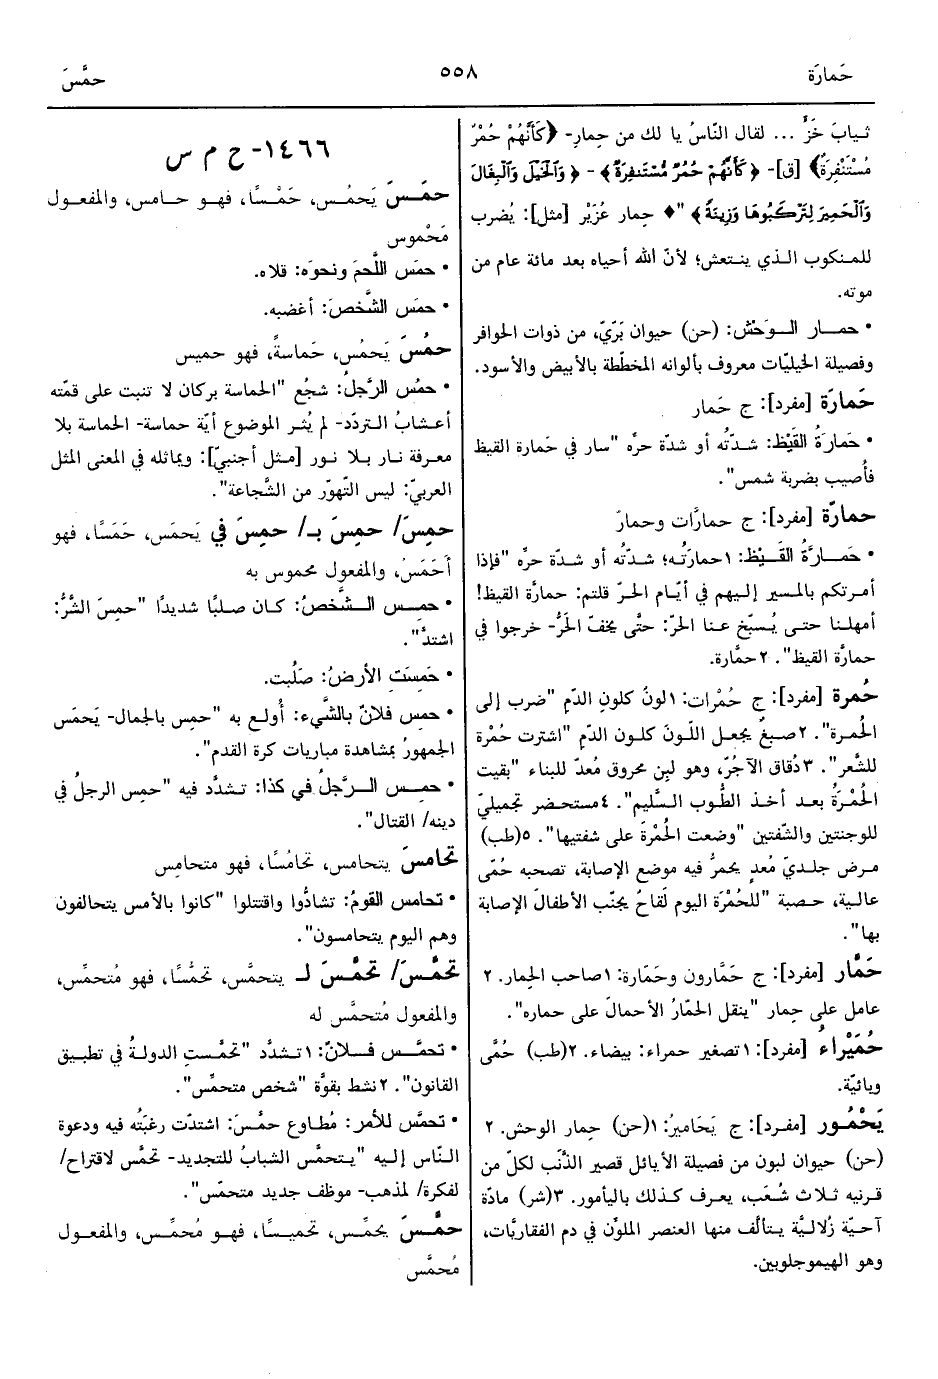 حَمارَة
٥٥٨
حمَّسَ
ثيابَ خَزٍّ ... لقال النّاسُ يا لك من حِمارِ- ﴿كَأَنَّهُمْ حُمْرٌ
مُسْتَنْفِرَةٌ﴾ [ق]- ﴿كَأَنَّهُمْ حُمُرٌ مُّسْتَنفِرَةٌ﴾- ﴿وَالْخَيْلَ وَالْبِغَالَ
وَالْحَمِيرَ لِتَرْكَبُوهَا وَزِينَةً﴾ "♦ حِمار عُزَيْر [مثل]: يُضرب
للمنكوب الذي ينتعش؛ لأنّ الله أحياه بعد مائة عام من
موته.
• حمار الوَحْش: (حن) حيوان بَرّيّ، من ذوات الحوافر
وفصيلة الخيليّات معروف بألوانه المخطّطة بالأبيض والأسود.
حَمارَة [مفرد]: ج حَمار
• حَمارَةُ القَيْظ: شدّتُه أو شدّة حرِّه "سار في حَمارة القيظ
فأُصيب بضربة شمس".
حمارّة [مفرد]: ج حمارّات وحمارّ
• حَمارَّةُ القَيْظ: ١حمارَتُه؛ شدّتُه أو شدّة حرِّه "فإذا
أمرتكم بالمسير إليهم في أيّام الحرّ قلتم: حمارَّة القيظ!
أمهلنا حتى يُسبّخ عنا الحرّ: حتَّى يخفّ الحَرُّ- خرجوا في
حمارَّة القيظ". ٢ حمَّارة.
حُمرة [مفرد]: ج حُمْرات: ١لونُ كلونِ الدّم "ضرب إلى
الحُمرة". ٢صبغٌ يجعل اللّونَ كلون الدّم "اشترت حُمْرة
للشَّعر". ٣دُقاق الآجُرّ، وهو لبِن محروق مُعدّ للبناء "بقيت
الحُمْرَةُ بعد أخذ الطُّوب السَّليم". ٤مستحضر تجميليّ
للوجنتين والشّفتين "وضعت الحُمْرةَ على شفتيها". ٥(طب)
مرض جلديّ مُعدٍ يحمرُّ فيه موضع الإصابة، تصحبه حُمّى
عالية، حصبة "للحُمْرَة اليوم لَقاحُ يجنّب الأطفالَ الإصابة
بها".
حَمَّار [مفرد]: ج حَمَّارون وحَمّارة: ١صاحب الحِمار. ٢
عامل على حِمار "ينقل الحَمّارُ الأحمالَ على حماره".
حُمَيْراءُ [مفرد]: ١تصغير حمراء: بيضاء. ٢(طب) حُمَّى
وبائيّة.
يَحْمُور [مفرد]: ج يَحَاميرُ: ١(حن) حِمار الوحش. ٢
(حن) حيوان لبون من فصيلة الأيائل قصير الذَّنَب لكلّ من
قرنيه ثلاث شُعَب، يعرف كذلك باليأمور. ٣(شر) مادّة
آحيّة زُلاليَّة يتألّف منها العنصر الملوِّن في دم الفقاريَّات،
وهو الهيموجلوبين.
١٤٦٦- ح م س
حمَسَ يَحمُس، حَمْسًا، فهو حامس، والمفعول
مَحْموس
• حمَس اللَّحمَ ونحوَه: قلاه.
• حمَس الشَّخصَ: أغضبه.
حمُسَ يَحمُس، حَماسةً، فهو حميس
• حمُس الرَّجلُ: شجُع "الحماسة بركان لا تنبت على قمّته
أعشابُ التردّد- لم يُثر الموضوع أيّة حماسة- الحماسة بلا
معرفة نار بلا نور [مثل أجنبيّ]: ويماثله في المعنى المثل
العربيّ: ليس التّهوّر من الشَّجاعة".
حمِسَ/ حمِسَ بـ/ حمِسَ في يَحمَس، حَمَسًا، فهو
أَحَمَسُ، والمفعول محموس به
• حمِس الشَّخصُ: كان صلبًا شديدًا "حمِسَ الشَّرُّ:
اشتدَّ".
• حَمِسَت الأرضُ: صَلُبت.
• حمِس فلانٌ بالشَّيء: أُولع به "حمِس بالجمال- يَحمَس
الجمهورُ بمشاهدة مباريات كرة القدم".
• حمِس الرَّجلُ في كذا: تشدَّد فيه "حمِس الرجلُ في
دينه/ القتال".
تحامسَ يتحامس، تحامُسًا، فهو متحامِس
• تحامس القومُ: تشادُّوا واقتتلوا "كانوا بالأمس يتحالفون
وهم اليوم يتحامسون".
تحمَّسَ/ تحمَّسَ لـ يتحمَّس، تحمُّسًا، فهو مُتحمِّس،
والمفعول مُتحمَّس له
• تحمَّس فلانٌ: ١تشدَّد "تحمَّستِ الدولةُ في تطبيق
القانون". ٢نشط بقوَّة "شخص متحمِّس".
• تحمَّس للأمر: مُطاوع حمَّسَ: اشتدّت رغبَتُه فيه ودعوة
النَّاس إليه "يتحمَّس الشبابُ للتجديد- تحمَّس لاقتراح/
لفكرة/ لمذهب- موظف جديد متحمّس".
حمَّسَ يحمِّس، تحميسًا، فهو مُحمِّس، والمفعول
مُحمَّس